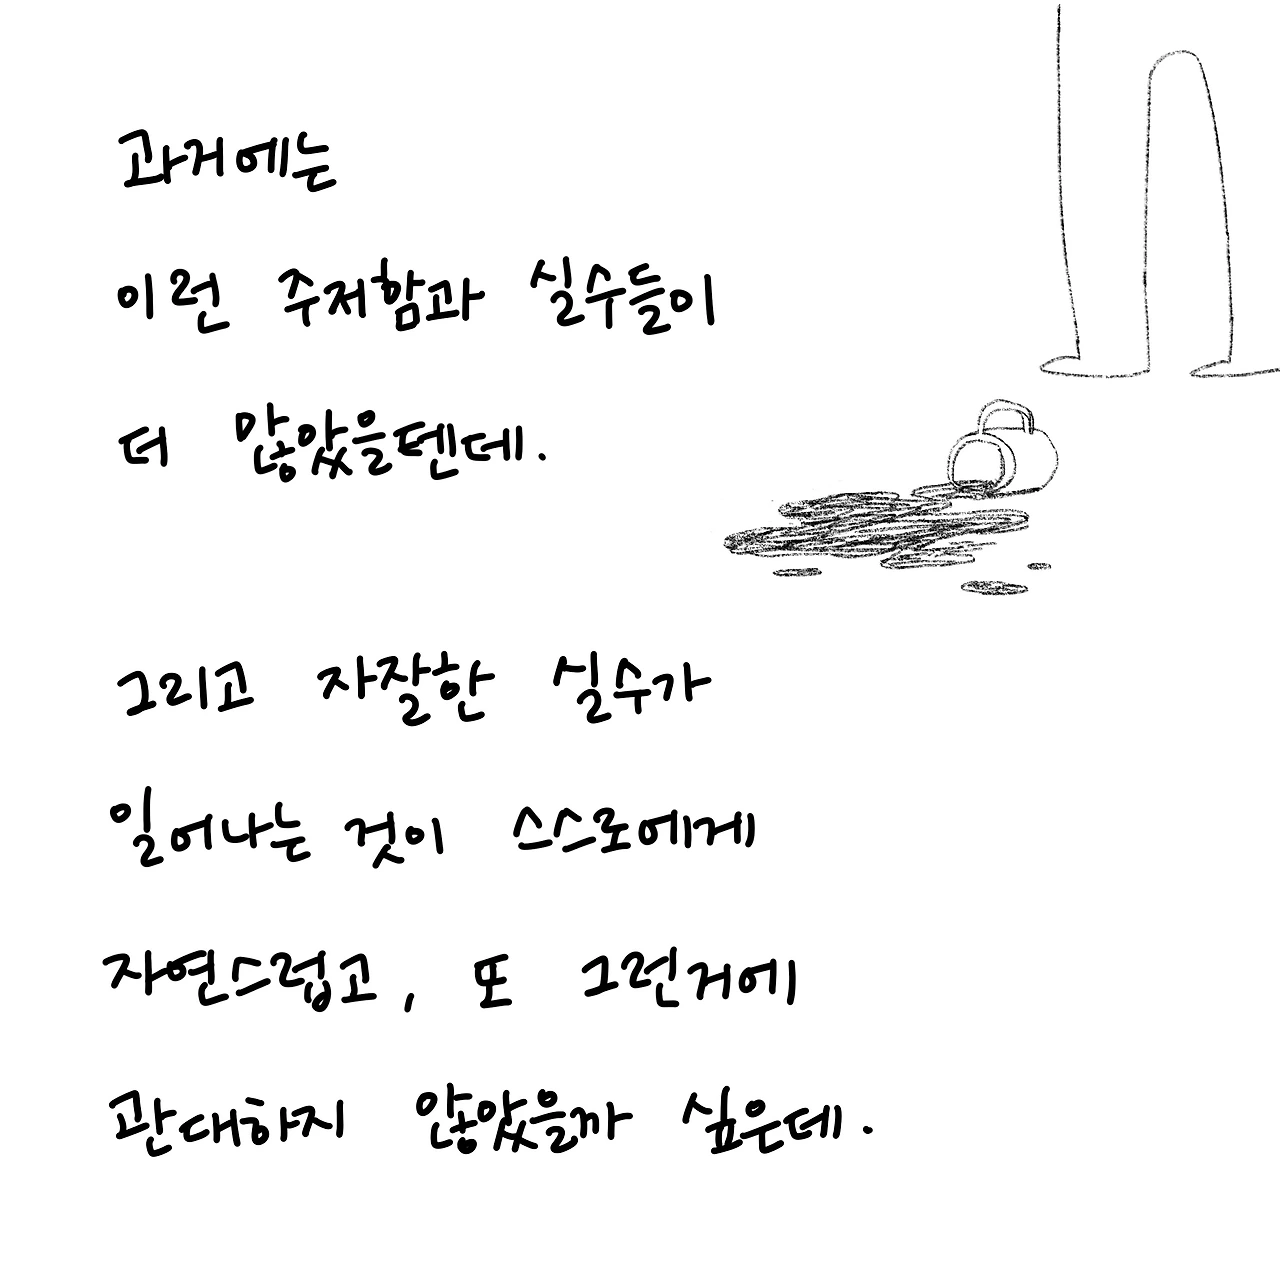 과거에는
이런 주저함과 실수들이
더 많았을텐데.
그리고 자잘한 실수가
일어나는 것이 스스로에게
자연스럽고, 또 그런거에
관대하지 않았을까 싶은데.